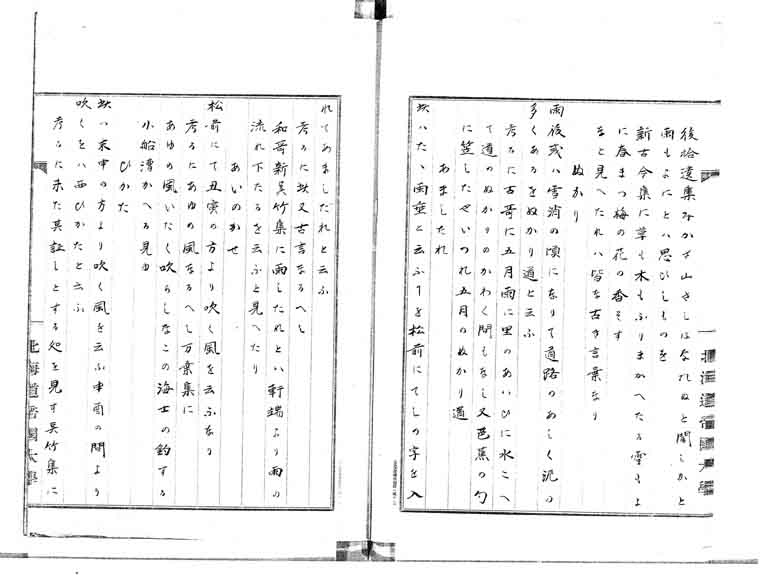 後拾遺集なかき山さしはなれぬと聞しかと
雨もよにとハ思ひしものを
新古今集に草も木もふりまかへたる雪もよ
に春まつ梅の花の香そす
なと見へたれハ皆な古き言葉なり
ぬかり
雨後或ハ雪消の頃になりて道路のあしく泥の
多くあるをぬかり道と云ふ
考るに古哥に五月雨に里のあいひに水こへ
て道のぬかりのかわく間もなし又芭蕉の句
に笠しまやいつれ五月のぬかり道
あましたれ
坎ハたゝ雨垂と云ふヿを松前にてしの字を入
れてあましたれと云ふ
考るに坎又古言なるへし
和哥新呉竹集に雨したれとハ軒端より雨の
流れ下たるを云ふと見へたり
あいのかせ
松前にて丑寅の方より吹く風を云ふなり
考るにあゆの風なるへし万葉集に
あゆの風いたく吹らしなこの海士の釣する
小船漕かへる見ゆ
ひかた
坎ハ未申の方より吹く風を云ふ申酉の間より
吹くをハ西ひかたと云ふ
考るに未た其証しとする処を見す呉竹集に
北海道帝國大學
北海道帝國大學